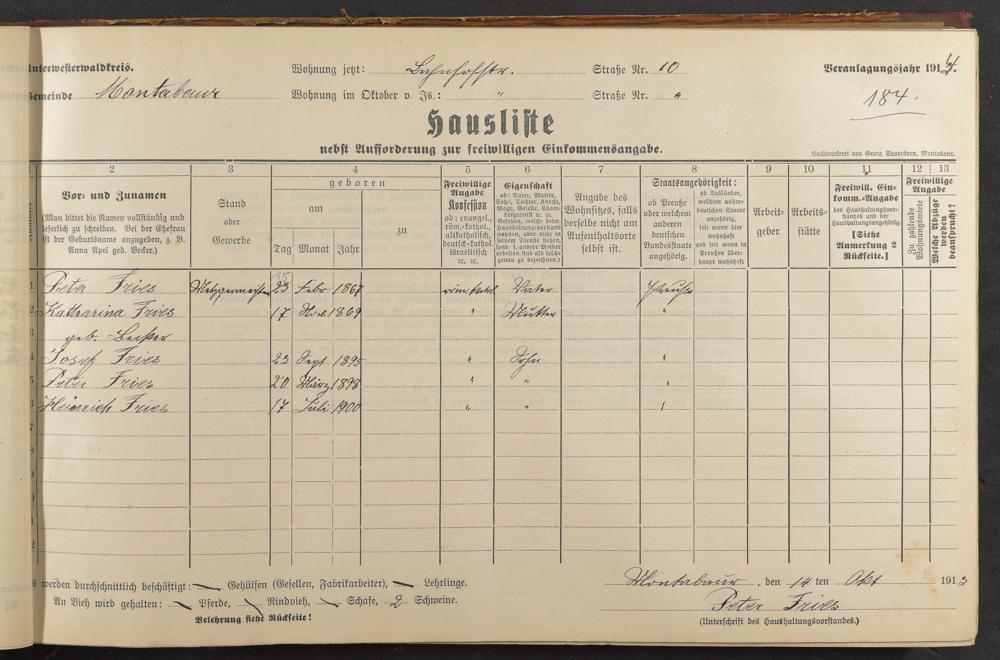 Unterwesterwaldkreis.
Wohnung jetzt: Bahnhofstr. Straße Nr. 10
Veranlagungsjahr 1914.
Gemeinde Montabaur
Wohnung im Oktober v. Js.: " Straße Nr. "
184.
Hausliste
nebst Aufforderung zur freiwilligen Einkommensangabe.
Buchdruckerei von Georg Sauerborn, Montabaur.
2 3 4 5 6 7 8 9 10 11 12 13
Vor- und Zunamen
(Man bittet die Namen vollständig und
leserlich zu schreiben. Bei der Ehefrau
ist der Geburtsname anzugeben, z. B.
Anna Apel geb. Becker.)
Stand
oder
Gewerbe
geboren
am
zu
Tag Monat Jahr
Freiwillige
Angabe
Konfession
ob: evangel.,
röm.-kathol.,
altkatholisch,
deutsch-kathol.
israelitisch
ec. ec.
Eigenschaft
ob: Vater, Mutter,
Sohn, Tochter, Knecht,
Magd, Geselle, Cham-
bergarnist ec. ec.
Gesellen, welche beim
Haushaltungsvorstand
wohnen, aber nicht in
seinem Dienste stehen,
sond. f. andere Meister
arbeiten, sind als solche
genau zu bezeichnen.)
Angabe des
Wohnsitzes, falls
derselbe nicht am
Aufenthaltsorte
selbst ist.
Staatsangehörigkeit:
ob Preuße
oder welchem
anderen
deutschen
Bundesstaate
angehörig.
ob Ausländer,
welchem außer-
deutschen Staate
angehörig,
seit wann hier
wohnhaft
und seit wann in
Preußen über-
haupt wohnhaft
Arbeit-
geber
Arbeits-
stätte
Freiwill. Ein-
komm.-Angabe
des Haushaltungsvor-
standes und der
Haushaltungsangehörig.
[Siehe
Anmerkung 2
Rückseite.]
Freiwillige
Angabe
Zu zahlende
Wohnungsmiete
Welche Abzüge
werden
beansprucht?
1 Peter Fries Metzgermeister 23 Febr 1867 röm. kath. Vater Preuße
Katharina Fries 17 Nov. 1869 " Mutter "
geb. Becker
Josef Fries 23 Sept 1895 " Sohn "
Peter Fries 20 März 1898 " " "
Heinrich Fries 17 Juli 1900 " " "
Es werden durchschnittlich beschäftigt: — Gehülfen (Gesellen, Fabrikarbeiter), — Lehrlinge.
An Vieh wird gehalten: — Pferde, — Rindvieh, — Schafe, 2 Schweine.
Belehrung siehe Rückseite!
Montabaur, den 14 ten Okt 1913
Peter Fries
(Unterschrift des Haushaltungsvorstandes.)